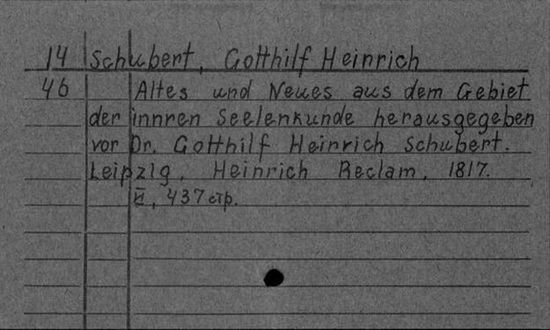 14 Schubert, Gotthilf Heinrich
46 Altes und Neues aus dem Gebiet
der innren Seelenkunde herausgegeben
vor Dr. Gotthilf Heinrich Schubert.
Leipzig, Heinrich Reclam, 1817.
437 стр.